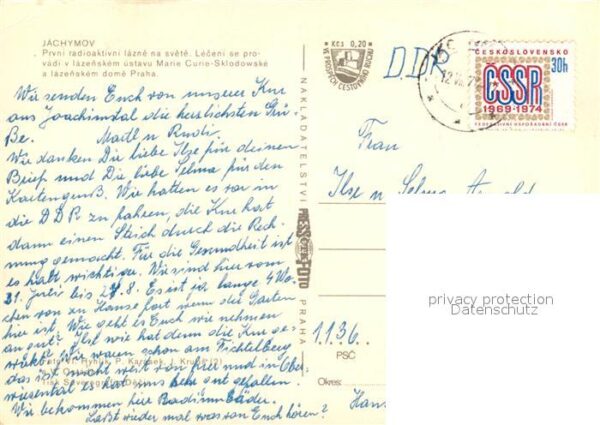 JÁCHYMOV
První radioaktivní lázně na světě. Léčení se pro-
vádí v lázeňském ústavu Marie Curie-Sklodowské
a lázeňském domě Praha.
Wir senden Euch von unserer Kur
aus Joachimstal die herzlichsten Grü-
ße. Madl u Rudi.
Wir danken Dir liebe Ilse für deinen
Brief und Dir liebe Selma für den
Kartengruß. Wir hatten es vor in
die DDR zu fahren, die Kur hat
dann einen Strich durch die Rech-
nung gemacht. Für die Gesundheit ist
es halt wichtiger. Wir sind hier vom
31. Juli bis 27.8. Es ist ja lange 4 Wo-
chen von zu Hause fort wenn der Garten
hier ist. Wie geht es Euch wir nehmen
an gut? Ilse wie hat denn die Kur ge-
wirkt? Wir waren schon am Fichtelberg
das ist nicht weit von hier und in Ober-
wiesental es hat uns sehr gut gefallen.
Wir bekommen hier Radiumbäder.
Laßt wieder mal was von Euch hören?
NAKLADATELSTVÍ
PRESSFOTO
PRAHA
Kčs 0,20
VE PROSPĚCH CESTOVNÍHO RUCHU
DDR
ČESKOSLOVENSKO
30h
ČSSR
1969-1974
FEDERATIVNÍ USPOŘÁDÁNÍ ČSSR
Frau
Ilse u Selma
privacy protection
Datenschutz
1136
PSČ
Okres: